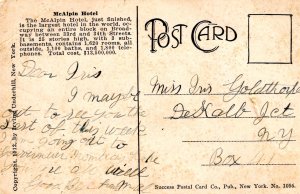 McAlpin Hotel
The McAlpin Hotel, just finished,
is the largest hotel in the world, oc-
cupying an entire block on Broad-
way between 33rd and 34th Streets.
It is 25 stories high, with 3 sub-
basements, contains 1,620 rooms, all
outside, 1,100 baths, and 1,800 tele-
phones. Total cost, $13,500,000.
POST CARD
Dear Iris
I maybe
out to see you the
last of this week
going to
well
Miss Iris Goldthorpe
DeKalb Jct
N.Y
Box
Copyright, 1912, by Irving Underhill, New York.
Success Postal Card Co., Pub., New York, No. 1056.